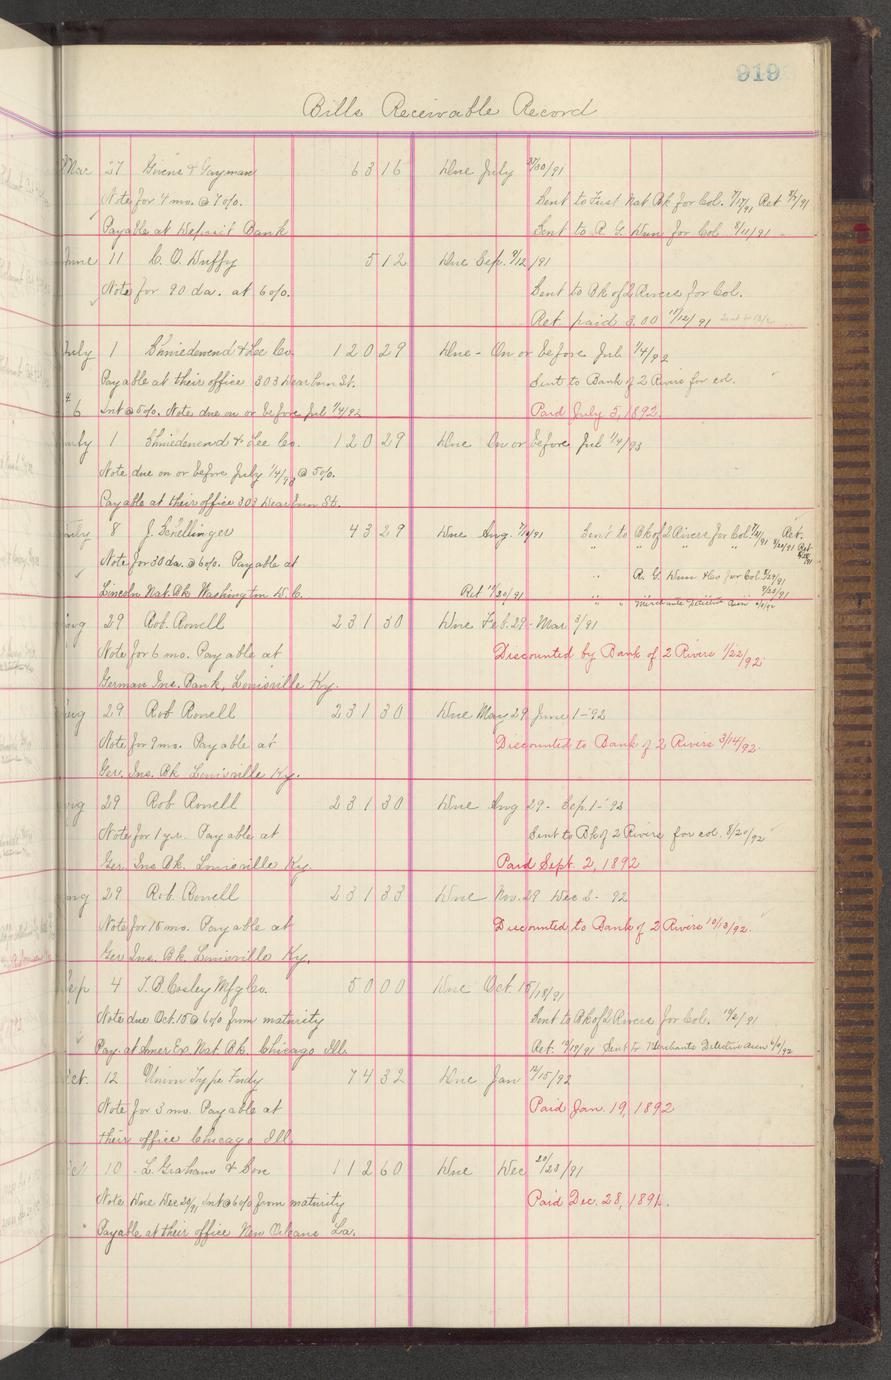 919
Bills Receivable Record
Mar 27 Givens & Gayman 63 16 Due July 27/30/91
Note for 4 mo. @ 7%. Sent to First Nat Bk for Col. 7/17/91 Ret 8/7/91
Payable at Deposit Bank Sent to R. G. Dun for Col 8/11/91
June 11 C. O. Duffy 5 12 Due Sep. 9/12/91
Note for 90 da. at 6%. Sent to Bk of 2 Rivers for Col.
Ret. paid 3.00 11/12/91
July 1 Shniedewend & Lee Co. 120 29 Due - On or before Jul 1/4/92
Payable at their office 303 Dearborn St. Sent to Bank of 2 Rivers for col.
& 6 Int @ 5%. Note due on or before Jul 1/4/92 Paid July 5, 1892.
July 1 Shniedewend & Lee Co. 120 29 Due On or before Jul 1/4/93
Note due on or before July 1/4/93 @ 5%.
Payable at their office 303 Dearborn St.
July 8 J. Schellinger 43 29 Due Aug. 7/10/91 Sent to Bk of 2 Rivers for Col. Ret.
Note for 30 da. @ 6%. Payable at " R. G. Dun & Co for Col.
Lincoln Nat. Bk Washington D. C. Ret 11/30/91
" " Merchants Detective Assn
Aug 29 Rob. Rowell 231 30 Due Feb. 29 - Mar 3/91
Note for 6 mo. Payable at Discounted by Bank of 2 Rivers 1/22/92
German Ins. Bank, Louisville Ky.
Aug 29 Rob Rowell 231 30 Due May 29 June 1-92
Note for 9 mo. Payable at Discounted to Bank of 2 Rivers 3/14/92.
Ger. Ins. Bk Louisville Ky.
Aug 29 Rob Rowell 231 30 Due Aug 29 - Sep. 1-'92
Note for 1 yr. Payable at Sent to Bk of 2 Rivers for col. 8/20/92
Ger. Ins Bk. Louisville Ky. Paid Sept. 2, 1892
Aug 29 Rob. Rowell 231 33 Due Nov. 29 Dec 2 - 92
Note for 15 mo. Payable at Discounted to Bank of 2 Rivers 10/13/92.
Ger. Ins. Bk. Louisville Ky.
Sep 4 T. B. Cosley Mfg Co. 50 00 Due Oct. 15/18/91
Note due Oct. 15 @ 6% from maturity Sent to Bk of 2 Rivers for Col. 10/2/91
Pay. at Amer Ex. Nat. Bk. Chicago Ill. Ret. 10/19/91 Sent to Merchants Detective Assn 4/4/92
Oct. 12 Union Type Fndy 74 32 Due Jan 12/15/92
Note for 3 mo. Payable at Paid Jan. 19, 1892
their office Chicago Ill.
10 L. Graham & Son 112 60 Due Dec 20/23/91
Note Due Dec 20/91, Int @ 6% from maturity Paid Dec. 28, 1891.
Payable at their office New Orleans La.